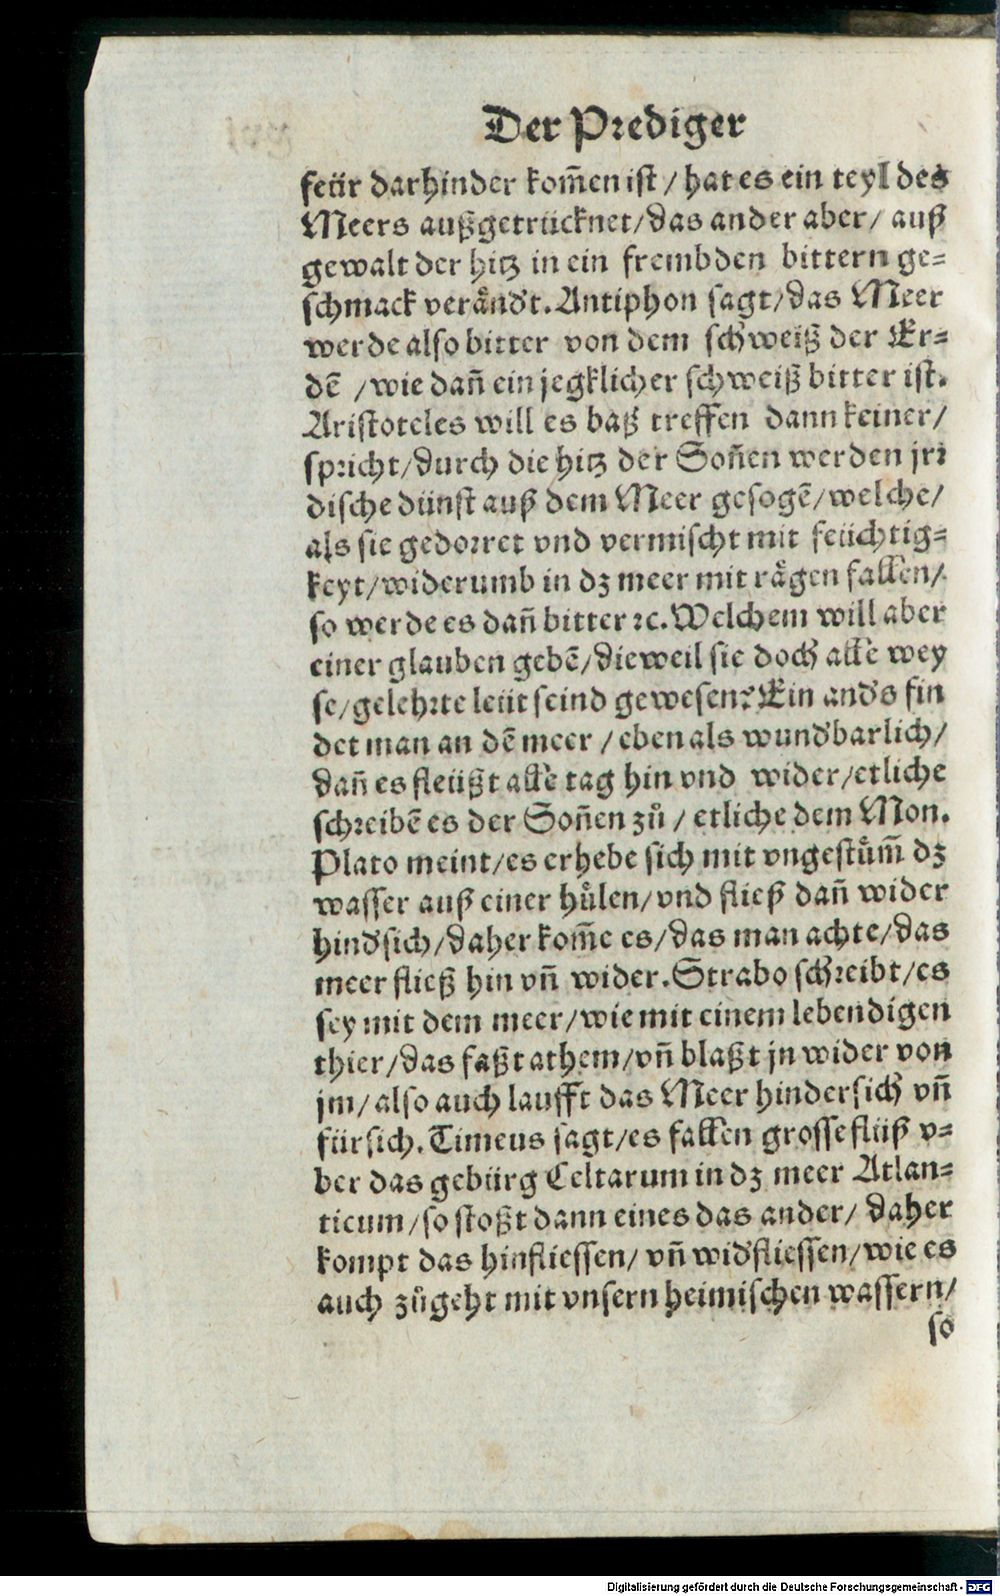 Der Prediger
feür darhinder kom̃en ist / hat es ein teyl des
Meers außgetrücknet/das ander aber/ auß
gewalt der hitz in ein frembden bittern ge=
schmack veråndt. Antiphon sagt/das Meer
werde also bitter von dem schweiß der Er=
dẽ /wie dañ ein jegklicher schweiß bitter ist.
Aristoteles will es baß treffen dann keiner/
spricht/durch die hitz der Soñen werden jrr
dische dünst auß dem Meer gesogẽ/welche/
als sie gedorret vnd vermischt mit feüchtig=
keyt/widerumb in dz meer mit rågen fallen/
so werde es dañ bitter ꝛc. Welchem will aber
einer glauben gebẽ/dieweil sie doch alle wey
se/gelehrte leüt seind gewesen? Ein anders fin
det man an dẽ meer /eben als wunderbarlich/
dañ es fleüßt alle tag hin vnd wider/etliche
schreibẽ es der Soñen zů / etliche dem Mon.
Plato meint/es erhebe sich mit vngestům̃ dz
wasser auß einer hůlen/vnd fließ dañ wider
hindersich/daher kom̃e es/das man achte/das
meer fließ hin vñ wider. Strabo schreibt/es
sey mit dem meer/wie mit einem lebendigen
thier/das faßt athem/vñ blaßt jn wider von
jm/also auch laufft das Meer hindersich vñ
fürsich. Timeus sagt/es fallen grosse flüß v=
ber das gebürg Celtarum in dz meer Atlan=
ticum/so stoßt dann eines das ander/ daher
kompt das hinfliessen/ vñ widerfliessen/wie es
auch zůgeht mit vnsern heimischen wassern/
so
Digitalisierung gefördert durch die Deutsche Forschungsgemeinschaft - DFG